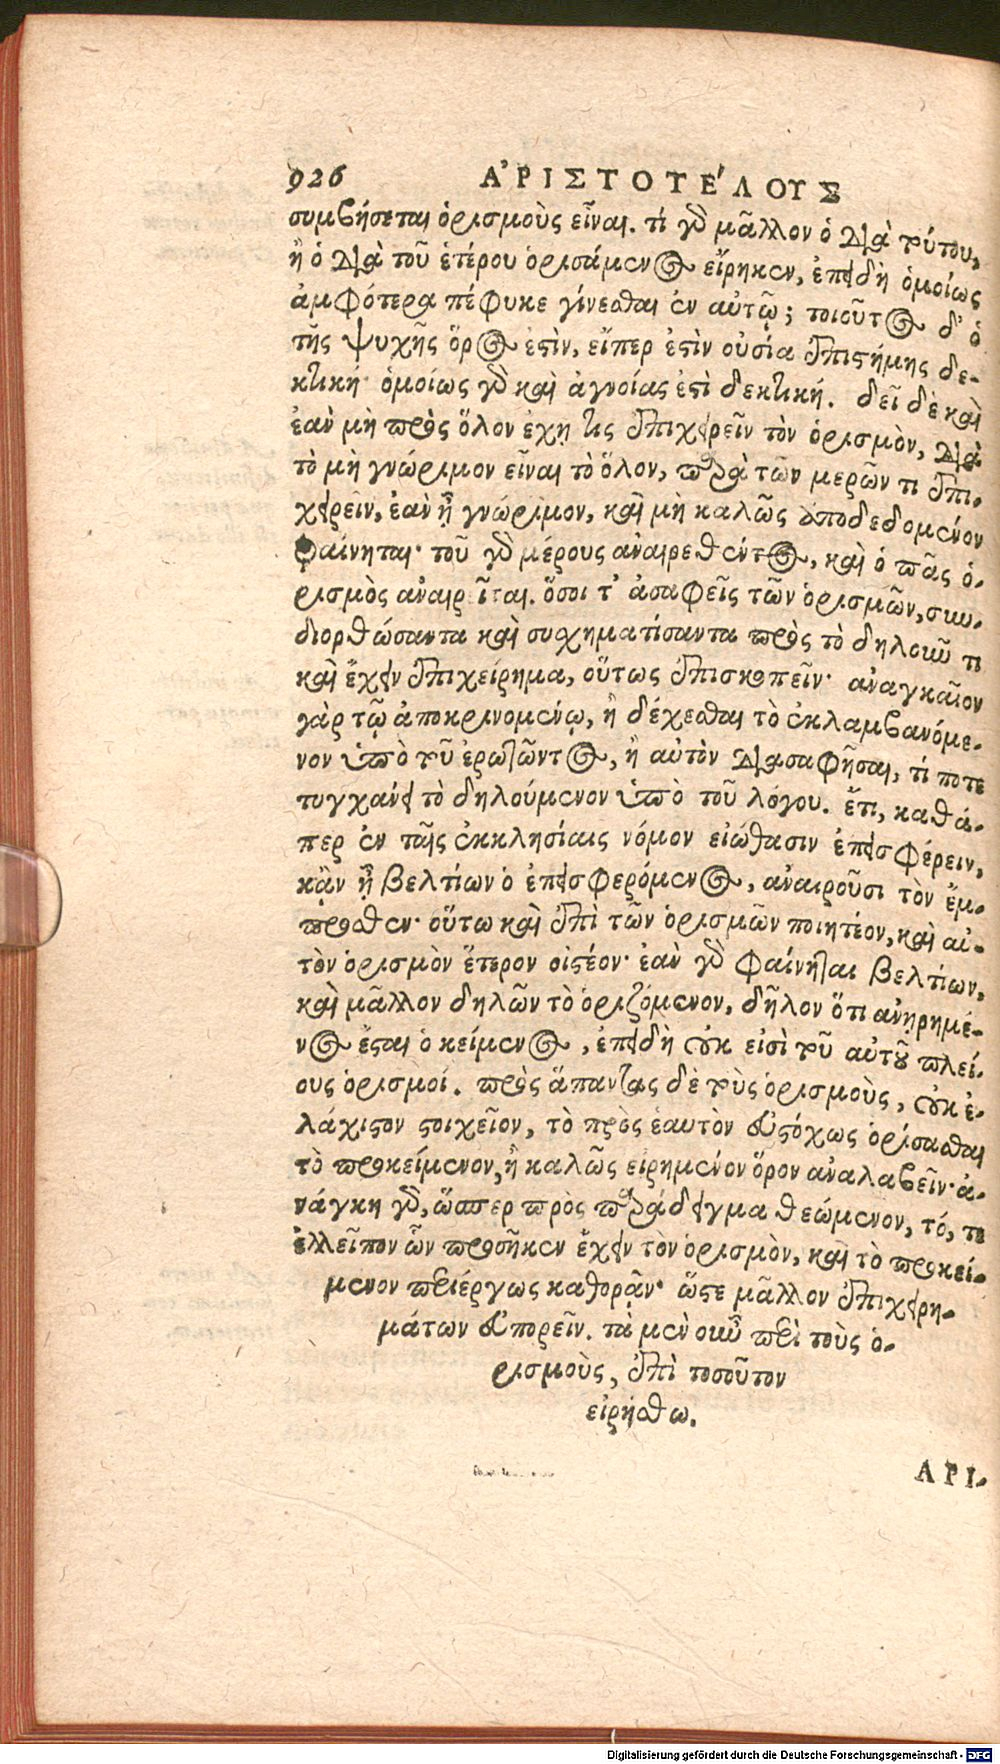 926 ἈΡΙΣΤΟΤΈΛΟΥΣ
συμβήσεται ὁρισμοὺς εἶναι. τί γὰρ μᾶλλον ὁ διὰ τούτου,
ἢ ὁ διὰ τοῦ ἑτέρου ὁρισάμενος εἴρηκεν, ἐπειδὴ ὁμοίως
ἀμφότερα πέφυκε γίνεσθαι ἐν αὐτῷ; τοιοῦτος δ' ὁ
τῆς ψυχῆς ὅρος ἐστὶν, εἴπερ ἐστὶν οὐσία ἐπιστήμης δε-
κτική· ὁμοίως γὰρ καὶ ἀγνοίας ἐστὶ δεκτική. δεῖ δὲ καὶ
ἐὰν μὴ πρὸς ὅλον ἔχῃ τις ἐπιχειρεῖν τὸν ὁρισμὸν, διὰ
τὸ μὴ γνώριμον εἶναι τὸ ὅλον, παρὰ τῶν μερῶν τι ἐπι-
χειρεῖν, ἐὰν ᾖ γνώριμον, καὶ μὴ καλῶς ἀποδεδομένον
φαίνηται· τοῦ γὰρ μέρους ἀναιρεθέντος, καὶ ὁ πᾶς ὁ-
ρισμὸς ἀναιρεῖται. ὅσοι τ' ἀσαφεῖς τῶν ὁρισμῶν, συν-
διορθώσαντα καὶ συσχηματίσαντα πρὸς τὸ δηλοῦν τι
καὶ ἔχειν ἐπιχείρημα, οὕτως ἐπισκοπεῖν· ἀναγκαῖον
γὰρ τῷ ἀποκρινομένῳ, ἢ δέχεσθαι τὸ ἐκλαμβανόμε-
νον ὑπὸ τοῦ ἐρωτῶντος, ἢ αὐτὸν διασαφῆσαι, τί ποτε
τυγχάνει τὸ δηλούμενον ὑπὸ τοῦ λόγου. ἔτι, καθά-
περ ἐν ταῖς ἐκκλησίαις νόμον εἰώθασιν ἐπεισφέρειν,
κἂν ᾖ βελτίων ὁ ἐπεισφερόμενος, ἀναιροῦσι τὸν ἔμ-
προσθεν· οὕτω καὶ ἐπὶ τῶν ὁρισμῶν ποιητέον, καὶ αὐ-
τὸν ὁρισμὸν ἕτερον οἰστέον· ἐὰν γὰρ φαίνηται βελτίων,
καὶ μᾶλλον δηλῶν τὸ ὁριζόμενον, δῆλον ὅτι ἀνῃρημέ-
νος ἔσται ὁ κείμενος, ἐπειδὴ οὐκ εἰσὶ τοῦ αὐτοῦ πλεί-
ους ὁρισμοί. πρὸς ἅπαντας δὲ τοὺς ὁρισμοὺς, οὐκ ἐ-
λάχιστον στοιχεῖον, τὸ πρὸς ἑαυτὸν εὐστόχως ὁρίσασθαι
τὸ προκείμενον, ἢ καλῶς εἰρημένον ὅρον ἀναλαβεῖν· ἀ-
νάγκη γὰρ, ὥσπερ πρὸς παράδειγμα θεώμενον, τό, τε
ἐλλεῖπον ὧν προσῆκεν ἔχειν τὸν ὁρισμὸν, καὶ τὸ προκεί-
μενον περιέργως καθορᾷν· ὥστε μᾶλλον ἐπιχειρη-
μάτων εὐπορεῖν. τὰ μὲν οὖν περὶ τοὺς ὁ-
ρισμοὺς, ἐπὶ τοσοῦτον
εἰρήσθω.
ΑΡΙ-
Digitalisierung gefördert durch die Deutsche Forschungsgemeinschaft - DFG